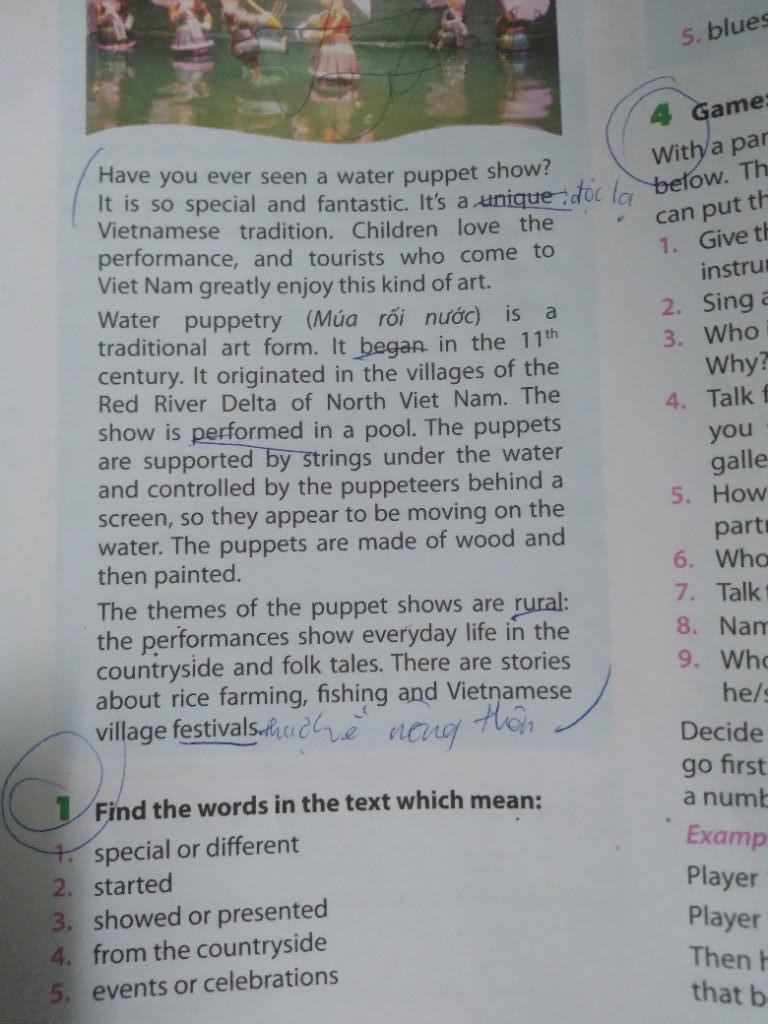 Have you ever seen a water puppet show?
It is so special and fantastic. It's a unique : độc lạ
Vietnamese tradition. Children love the
performance, and tourists who come to
Viet Nam greatly enjoy this kind of art.
Water puppetry (Múa rối nước) is a
traditional art form. It began in the 11th
century. It originated in the villages of the
Red River Delta of North Viet Nam. The
show is performed in a pool. The puppets
are supported by strings under the water
and controlled by the puppeteers behind a
screen, so they appear to be moving on the
water. The puppets are made of wood and
then painted.
The themes of the puppet shows are rural:
the performances show everyday life in the
countryside and folk tales. There are stories
about rice farming, fishing and Vietnamese
village festivals. thuộc về nông thôn
1 Find the words in the text which mean:
1. special or different
2. started
3. showed or presented
4. from the countryside
5. events or celebrations
5. blues
4 Game:
With a par
below. Th
can put th
1. Give th
instru
2. Sing a
3. Who i
Why?
4. Talk f
you
galle
5. How
partr
6. Who
7. Talk f
8. Nam
9. Who
he/s
Decide
go first
a numb
Examp
Player
Player
Then h
that b